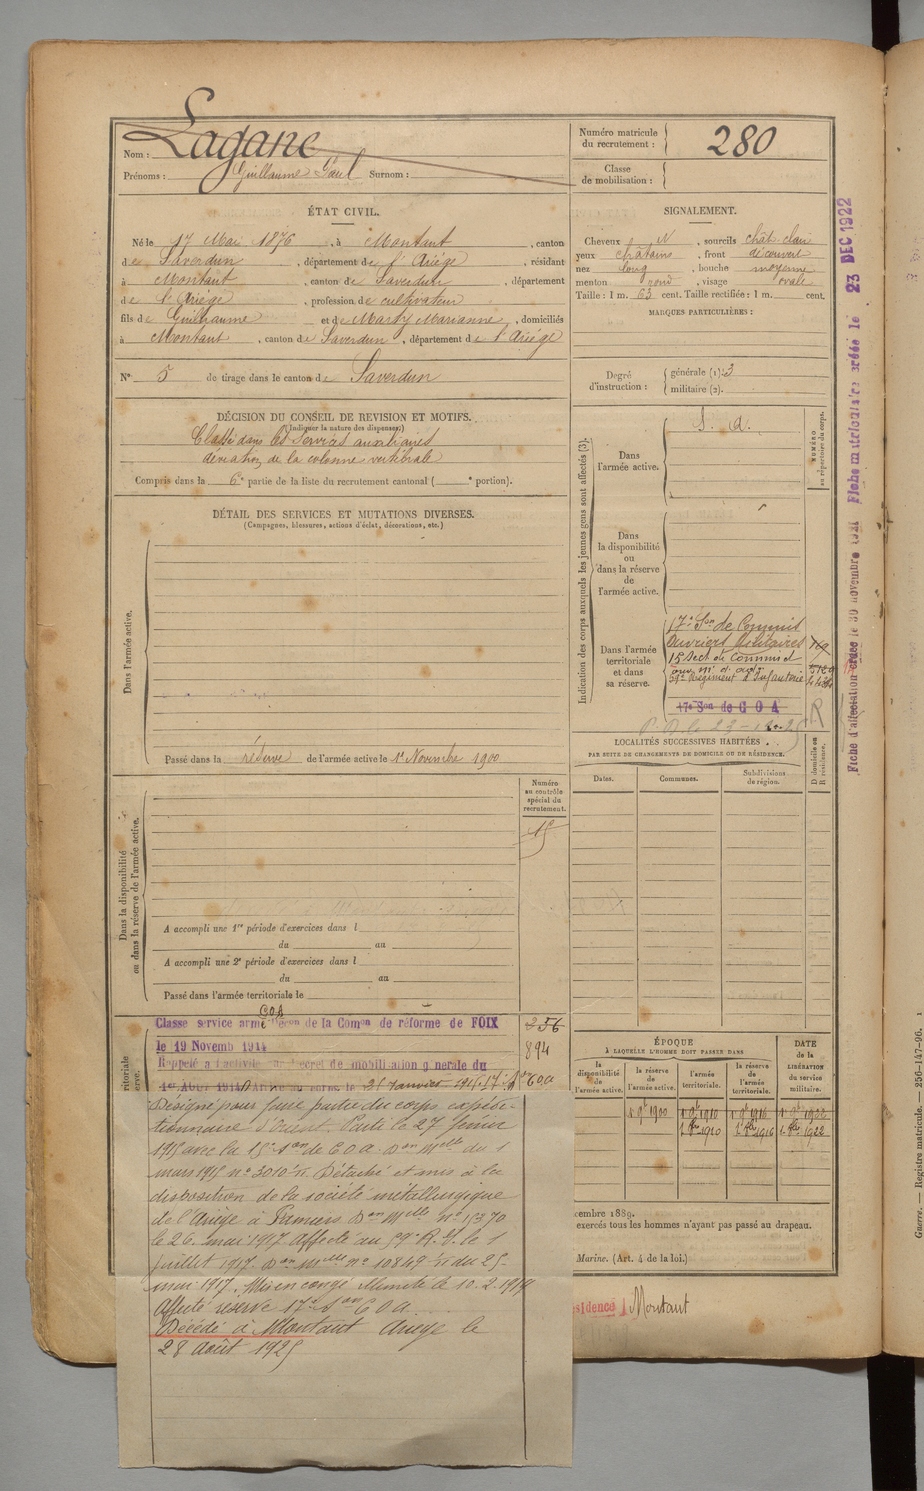 Nom : Lagane
Prénoms : Guillaume Paul Surnom :
Numéro matricule du recrutement : 280
Classe de mobilisation :
ÉTAT CIVIL.
Né le 17 Mai 1876, à Montaut, canton
de Saverdun, département de l'Ariége, résidant
à Montaut, canton de Saverdun, département
de l'Ariége, profession de cultivateur
fils de Guilhaume et de Marty Marianne, domiciliés
à Montaut, canton de Saverdun, département de l'Ariége
N° 5 de tirage dans le canton de Saverdun
SIGNALEMENT.
Cheveux N, sourcils chât. clair
yeux châtains, front découvert
nez long, bouche moyenne
menton rond, visage ovale
Taille : 1 m. 63 cent. Taille rectifiée : 1 m. cent.
MARQUES PARTICULIÈRES :
Degré d'instruction : générale (1). 3
militaire (2).
DÉCISION DU CONSEIL DE REVISION ET MOTIFS.
(Indiquer la nature des dispenses.)
Classé dans les services auxiliaires
déviation de la colonne vertébrale
Compris dans la 6e partie de la liste du recrutement cantonal ( e portion).
DÉTAIL DES SERVICES ET MUTATIONS DIVERSES.
(Campagnes, blessures, actions d'éclat, décorations, etc.)
Dans l'armée active.
Passé dans la réserve de l'armée active le 1er Novembre 1900
Indication des corps auxquels les jeunes gens sont affectés (3).
NUMÉRO au répertoire du corps.
Dans l'armée active.
S. A.
Dans la disponibilité ou dans la réserve de l'armée active.
Dans l'armée territoriale et dans sa réserve.
17e Son de Commis
Ouvriers Militaires
15 Sect de Commis d
ouv. m. d. ad.
59e Régiment d'Infanterie
17e Son de C O A
R
LOCALITÉS SUCCESSIVES HABITÉES
PAR SUITE DE CHANGEMENTS DE DOMICILE OU DE RÉSIDENCE.
D domicile ou R résidence.
Dates. Communes. Subdivisions de région.
Numéro au contrôle spécial du recrutement.
15
Dans la disponibilité ou dans la réserve de l'armée active.
A accompli une 1re période d'exercices dans l
du au
A accompli une 2e période d'exercices dans l
du au
Passé dans l'armée territoriale le
COA
Classe service armé de la Comon de réforme de FOIX
le 19 Novemb 1914
Rappelé a l'activité décret de mobilisation générale du
1er Août 1914 Arrivé au corps le 21 Janvier 1915
256
894
ritoriale
Désigné pour faire partie du corps expédi-
tionnaire d'Orient. Parti le 27 février
1915 avec la 15e Son de C O A. Don Melle du 1
mars 1915 n° 3010. Détaché et mis à la
disposition de la société métallurgique
de l'Ariège à Pamiers Don Melle n° 15370
le 26 mai 1917. Affecté au 59e R. I. le 1
juillet 1917. Don Melle n° 10849 du 25
mai 1917. Mis en congé illimité le 10.2.1919
Affecté réserve 17e Son C O A.
Décédé à Montaut Ariege le
28 août 1925
ÉPOQUE
À LAQUELLE L'HOMME DOIT PASSER DANS
DATE de la LIBÉRATION du service militaire.
la disponibilité de l'armée active.
la réserve de l'armée active.
l'armée territoriale.
la réserve de l'armée territoriale.
1 9b 1900 1 9b 1910 1 9b 1916 1 9b 1922
1 8bre 1910 1 8bre 1916 1 8bre 1922
cembre 1889.
exercés tous les hommes n'ayant pas passé au drapeau.
Marine. (Art. 4 de la loi.)
ésidence Montaut
Fiche d'affectation créée le 30 novembre 1921 Fiche matriculaire créée le 23 DEC 1922
Guerre. — Registre matricule. — 256-147-96.